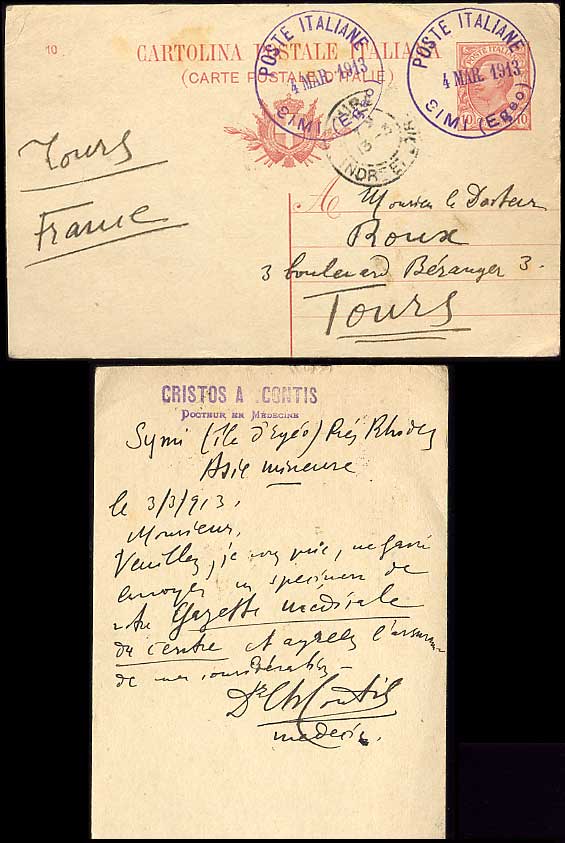 10
CARTOLINA POSTALE ITALIANA
(CARTE POSTALE D'ITALIE)
POSTE ITALIANE
4 MAR. 1913
SIMI (Egeo)
POSTE ITALIANE
4 MAR. 1913
SIMI (Egeo)
POSTE ITALIANE
10 10
INDRE ET
Tours
France
A Monsieur le Docteur
Roux
3 boulevard Béranger 3.
Tours
CRISTOS A CONTIS
DOCTEUR EN MÉDECINE
Symi (île d'Egéo) Près Rhodes
Asie mineure
le 3/3/913.
Monsieur,
Veuillez, je vous prie, me faire
envoyer un specimen de
votre Gazette medicale
du centre et agréez l'assurance
de ma considération
Dr Ch Contis
medecin.